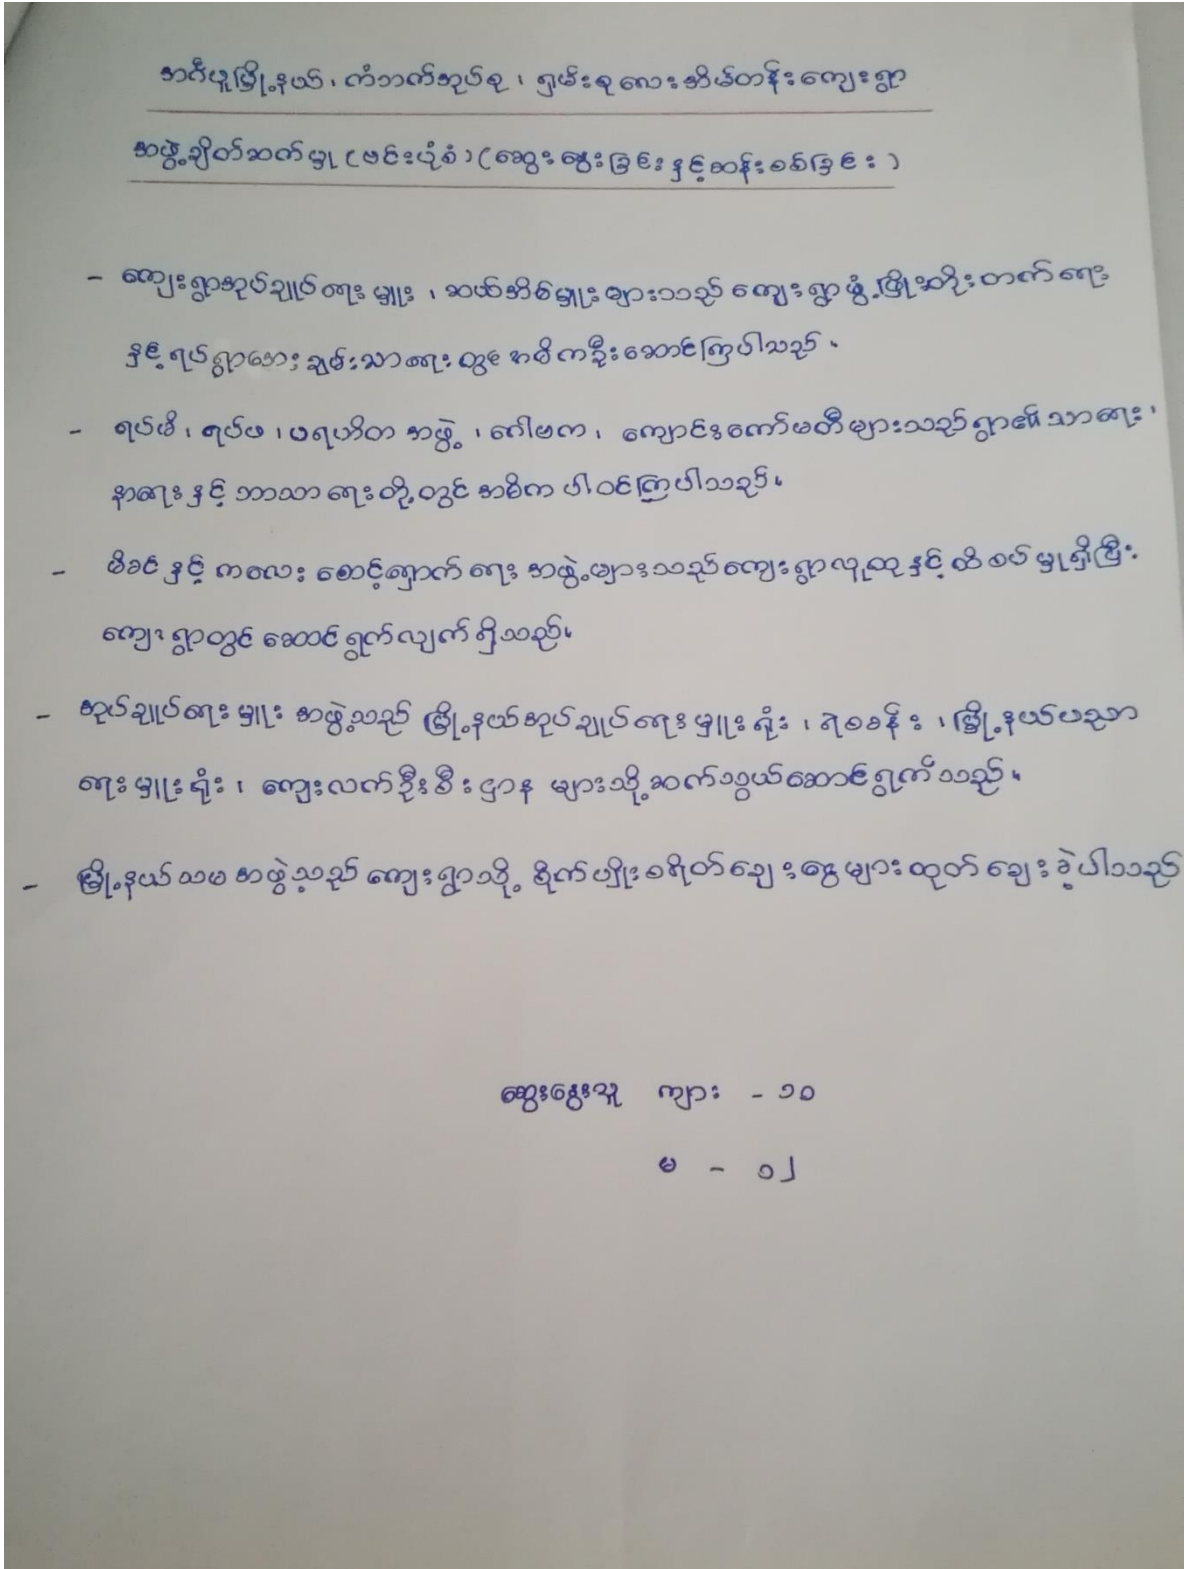 အင်္ဂပူမြို့နယ်၊ ကံဘက်အုပ်စု၊ ရှမ်းစုလေးအိမ်တန်းကျေးရွာ
အဖွဲ့ချိတ်ဆက်မှု (ဗင်းပုံစံ) (ဆွေးနွေးခြင်းနှင့်ဆန်းစစ်ခြင်း)
- ကျေးရွာအုပ်ချုပ်ရေးမှူး၊ ဆယ်အိမ်မှူးများသည် ကျေးရွာဖွံ့ဖြိုးတိုးတက်ရေး
နှင့် ရပ်ရွာအေးချမ်းသာရေးတွင် အဓိကဦးဆောင်ကြပါသည်။
- ရပ်မိ၊ ရပ်ဖ၊ ပရဟိတ အဖွဲ့၊ ဂေါပက၊ ကျောင်းကော်မတီများသည် ရွာ၏ သာရေး၊
နာရေးနှင့် ဘာသာရေးတို့တွင် အဓိက ပါဝင်ကြပါသည်။
- မိခင်နှင့် ကလေး စောင့်ရှောက်ရေး အဖွဲ့များသည် ကျေးရွာလူထုနှင့် ထိစပ်မှုရှိပြီး
ကျေးရွာတွင် ဆောင်ရွက်လျှက်ရှိသည်။
- အုပ်ချုပ်ရေးမှူး အဖွဲ့သည် မြို့နယ်အုပ်ချုပ်ရေးမှူးရုံး၊ ရဲစခန်း၊ မြို့နယ်ပညာ
ရေးမှူးရုံး၊ ကျေးလက်ဦးစီးဌာန များသို့ ဆက်သွယ်ဆောင်ရွက်သည်။
- မြို့နယ်သမအဖွဲ့သည် ကျေးရွာသို့ စိုက်ပျိုးစရိတ်ချေးငွေများထုတ်ချေးခဲ့ပါသည်
ဆွေးနွေးသူ ကျား - ၁၀
မ - ၁၂